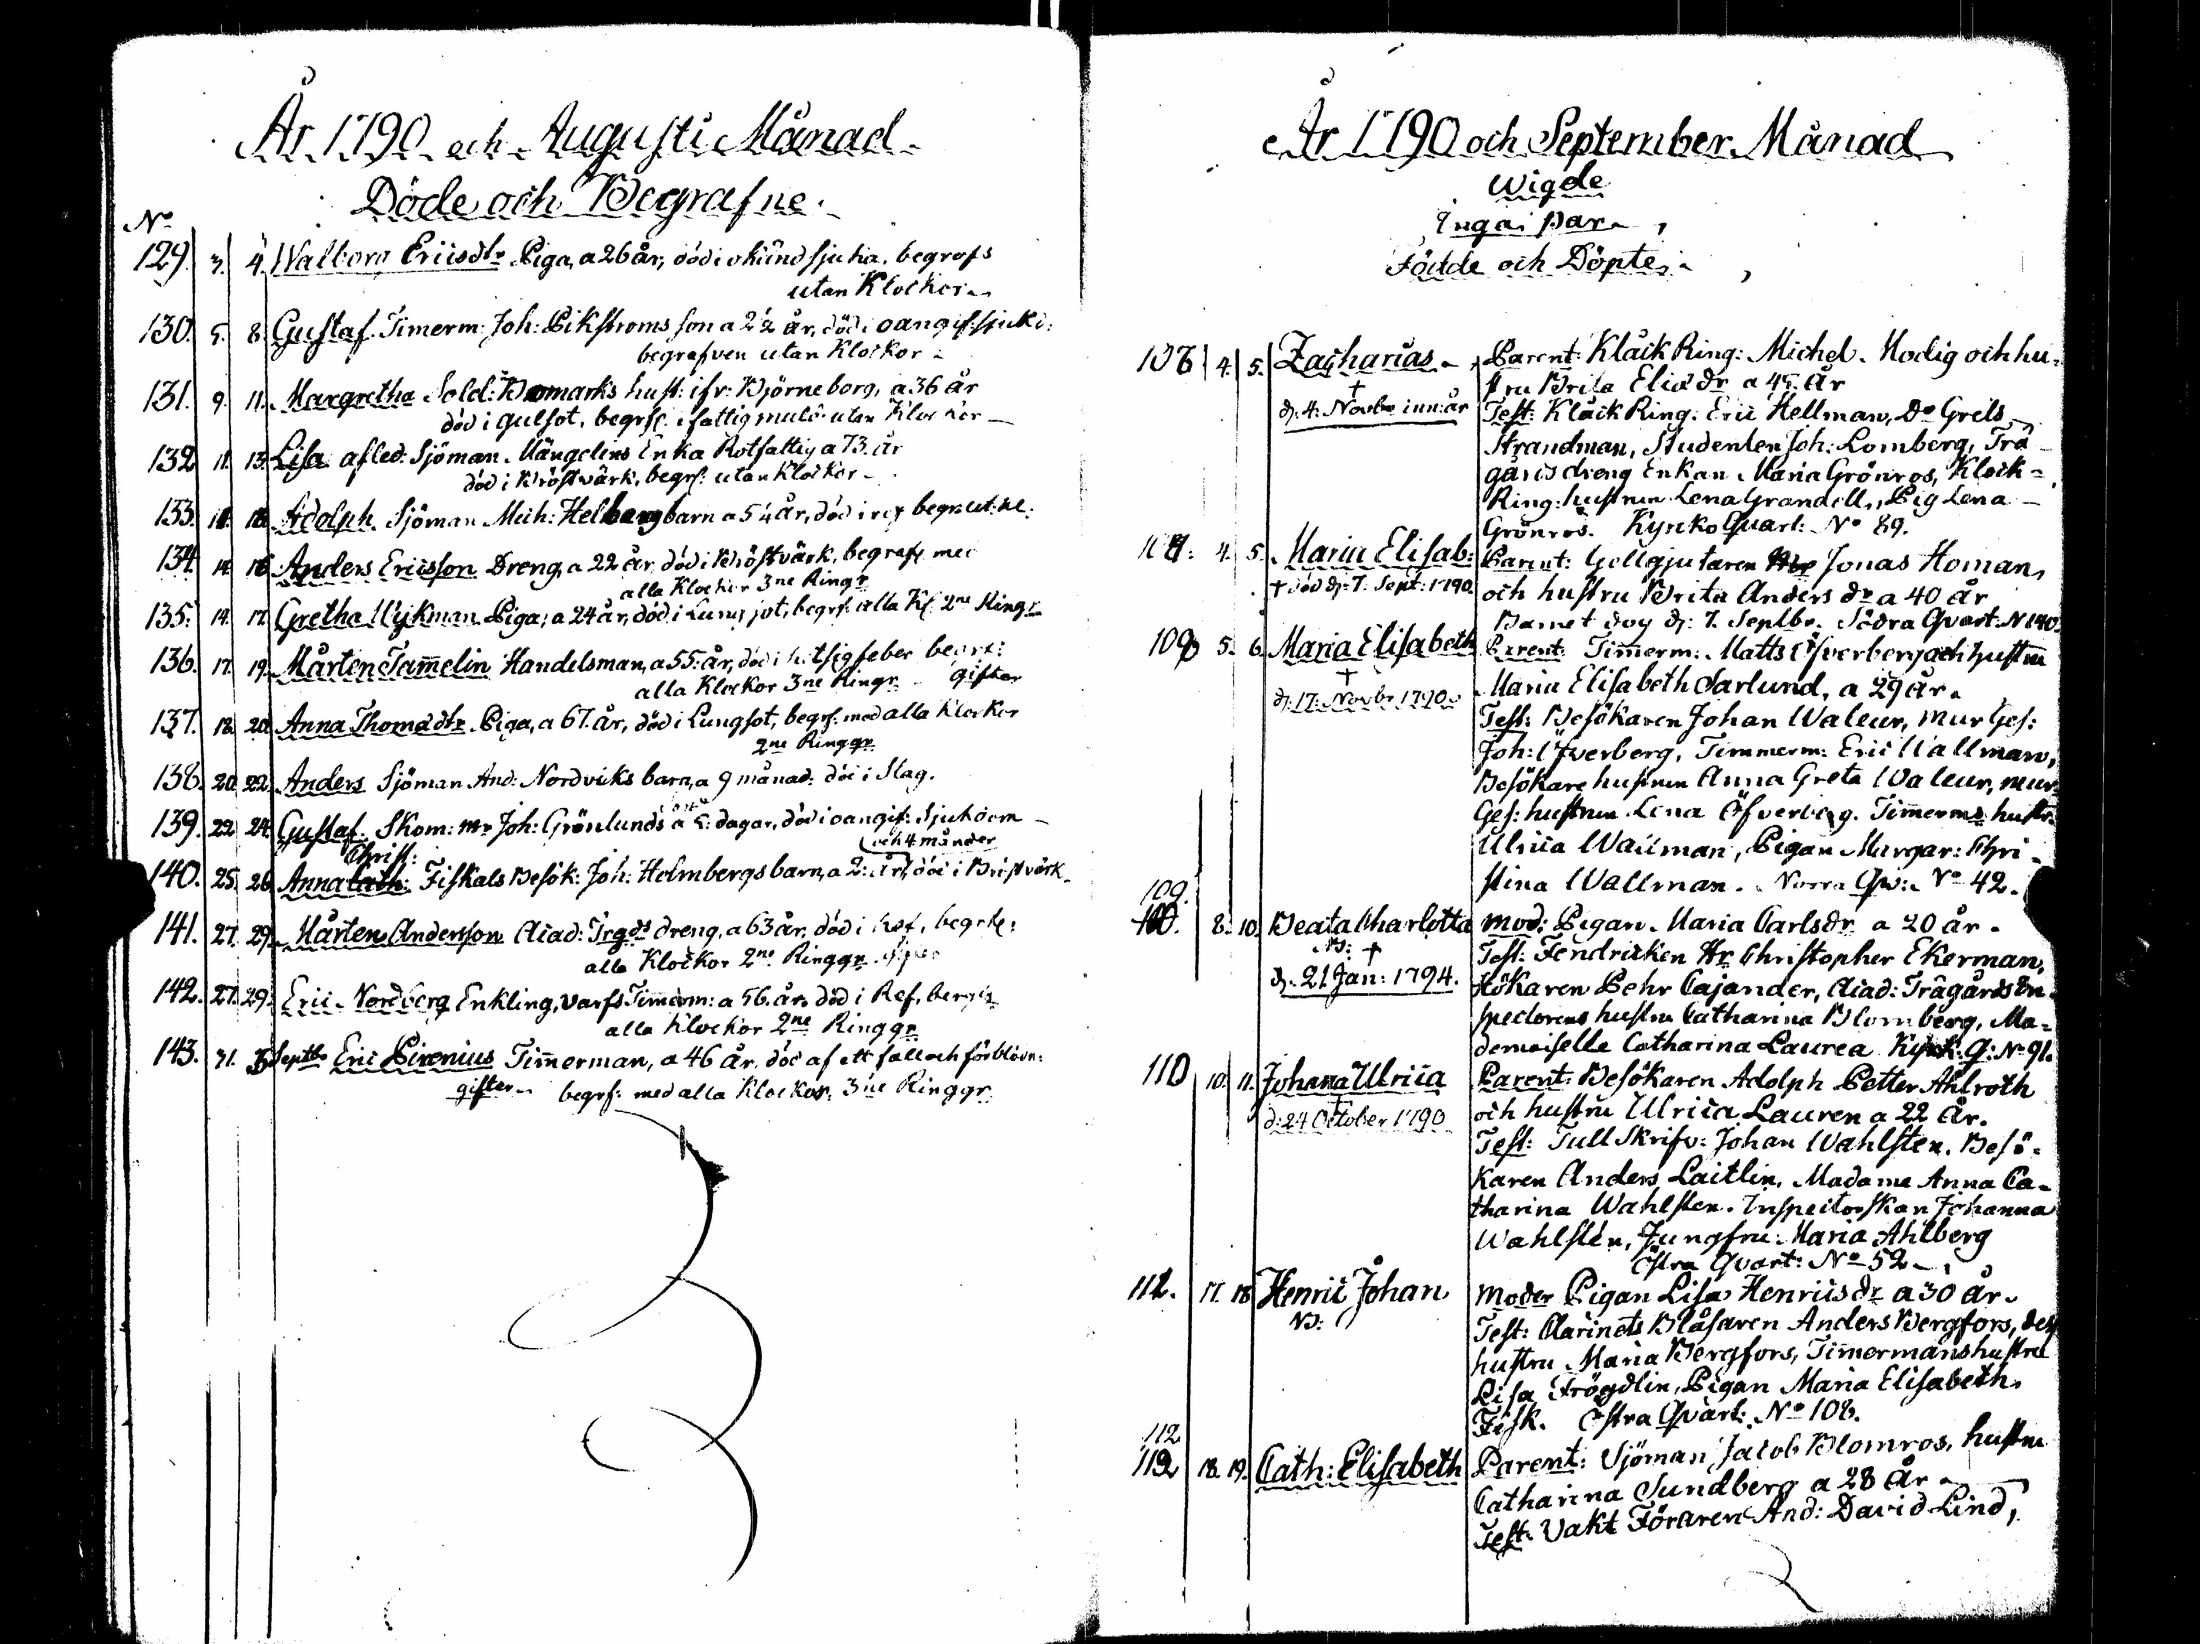 År 1790 och Augusti Månad
Döde och Begrafne.
No
129. 3. 4. Walborg Ericsdtr Piga, a 26 år, död i okänd sjuka, begrafs
utan Klockor
130. 5. 8. Gustaf Timerm: Joh: Pikstroms son a 2½ år, död i oangif: sjukd:
begrafven utan Klockor
131. 9. 11. Margretha Sold: hust: ifr: Björneborg, a 36 år
död i gulsot, begrf: i fattig utan Klockor
132 11. 13. Lisa afled: Sjöman Mångelins Enka Rotfattig a 73 år
död i Bröstvärk, begrf: utan Klockor
133. Adolph Sjöman Mich: Helberg barn a 5¼ år, död i begr: ut: kl:
134. 14. 16 Anders Ericsson Dreng, a 22 år, död i Bröstvärk, begrafs med
alla Klockor 3ne Ringr
135. 14. 17. Gretha Wijkman Piga, a 24 år, död i Lungsot, begrf: alla Kl: 2ne Ringr
136. 17. 19. Mårten Tam̄elin Handelsman, a 55: år, död i hetsig feber begrf:
alla Klockor 3ne Ringr gifter
137. 18. 20. Anna Thomædtr Piga, a 67. år, död i Lungsot, begrf: med alla Klockor
2ne Ringgr
138. 20. 22. Anders Sjöman And: Nordviks barn, a 9 månad: död i Slag.
139. 22. 24. Gustaf Skom: Mr Joh: Grönlunds a 5: dagar, död i oangif: Sjukdom
Christ: och 4 månder
140. 25. 26. Anna Cath: Fiskals Besök: Joh: Helmbergs barn, a 2: år, död i Bröstvärk
141. 27. 29. Mårten Andersson Acad: Trgds dreng, a 63 år, död i Ref, begrf:
alla Klockor 2ne Ringgr gifter
142. 27. 29. Eric Nordberg Enkling, varfs Tim̄erm: a 56. år, död i Ref, begrfs
alla Klockor 2ne Ringgr
143. 31. 3 Septbr Eric Pirenius Tim̄erman, a 46 år, död af ett fall och förblödn:
gifter begrf: med alla Klockor, 3ne Ringgr
År 1790 och September Månad
Wigde
Inga par
Födde och Döpte
4. 5. Zacharias Parent: Klåck Ring: Michel Modig och hu-
† stru Brita Eliædr a 45. år
d: 4: Novbr innevar år Test: Klåck Ring: Eric Hellman, Do Grels
Strandman, Studenten Joh: Lomberg, Trä
gårds dreng Enkan Maria Grönros, Klock-
Ring: hustrun Lena Grandell, Pig Lena
Grönros. Kyrko Quart: No 89.
4. 5. Maria Elisab: Parent: Gellgjutaren Jonas Homan,
† död d: 7. Sept: 1790 och hustru Brita Andersdr a 40 år
Barnet dog d: 7. Septbr. Södra Qvart: N 140.
5. 6. Maria Elisabeth Parent: Tim̄erm: Matts Öfverberg och hustru
†
d: 17. Novbr 1790. Maria Elisabeth Sarlund, a 29 år.
Test: Besökaren Johan Waleur, Mur Ges:
Joh: Öfverberg, Timmerm: Eric Wallman,
Besökare hustrun Anna Greta Waleur, Mur
Ges: hustrun Lena Öfverberg. Tim̄erms hustr:
Ulrica Wallman, Pigan Margar: Chri-
stina Wallman. Norra Qw: No 42.
109.
8. 10. Beata Charlotta Mod: Pigan Maria Carlsdr a 20 år.
† Test: Fendricken Hr Christopher Ekerman,
d. 21 Jan: 1794. Hökaren Pehr Cajander, Acad: Trägårds In-
spectorens hustru Catharina Blomberg, Ma-
demoiselle Catharina Laurea Kyrk: Q: No 91.
110 10. 11. Johana Ulrica Parent: Besökaren Adolph Petter Ahlroth
d: 24 October 1790 och hustru Ulrica Lauren a 22 år.
Test: Tull Skrifv: Johan Wahlsten. Besö-
karen Anders Laitlin, Madame Anna Ca-
tharina Wahlsten. Inspectorskan Johanna
Wahlstén, Jungfru Maria Ahlberg
Östra Qvart: No 52
17. 18 Henric Johan Moder Pigan Lisa Henricsdr a 30 år.
Test: Clarinets Blåsaren Anders Bergfors, dess
hustru Maria Bergfors, Tim̄ermans hustru
Lisa Frögdlin, Pigan Maria Elisabeth
Fisk. Östra Qvart: No 108.
112
18. 19. Cath: Elisabeth Parent: Sjöman Jacob Blomros, hustru
Catharina Sundberg a 28 år
Test: Vakt Föraren And: David Lind,